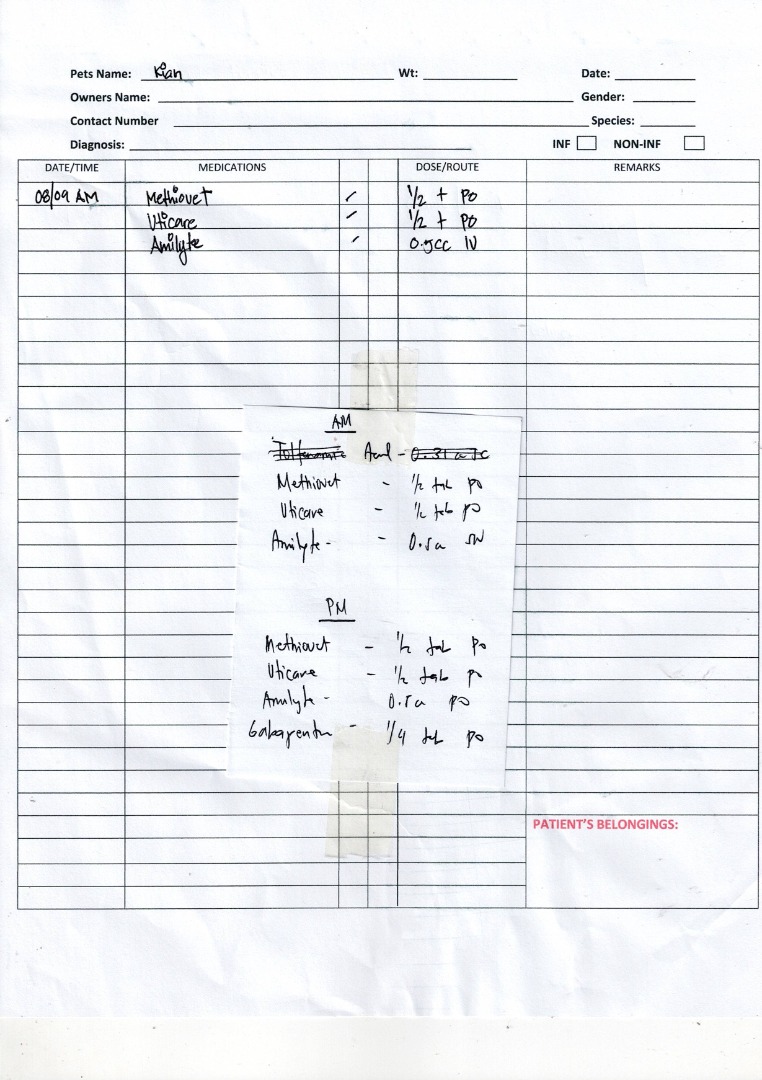 Pets Name: Kian Wt: Date:
Owners Name: Gender:
Contact Number Species:
Diagnosis: INF NON-INF
DATE/TIME MEDICATIONS DOSE/ROUTE REMARKS
08/09 AM Methiovet ✓ 1/2 t PO
Uticare ✓ 1/2 t PO
Amilyte ✓ 0.5cc IV
AM
Acid -
Methiovet - 1/2 tab po
Uticare - 1/2 tab po
Amilyte - - 0.5cc
PM
Methiovet - 1/2 tab po
Uticare - 1/2 tab po
Amilyte - 0.5cc po
Gabapentin - 1/4 tab po
PATIENT'S BELONGINGS: